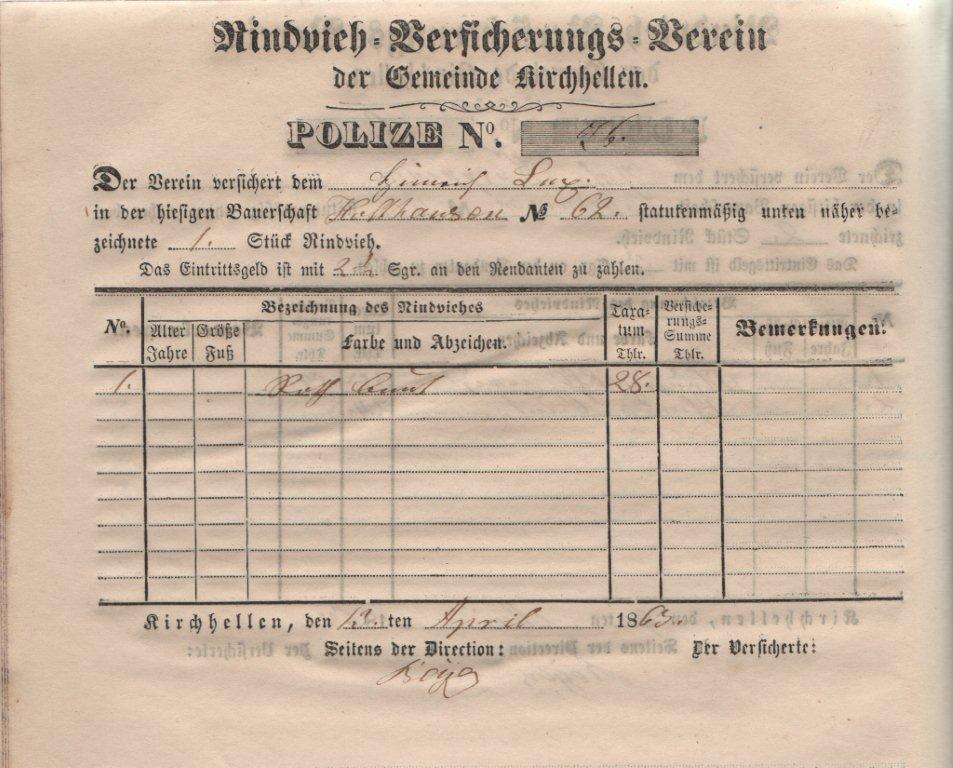 Rindvieh-Versicherungs-Verein
der Gemeinde Kirchhellen.
POLIZE No. 76.
Der Verein versichert dem Heinrich Lux.
in der hiesigen Bauerschaft Holthausen No 62. statutenmäßig unten näher be-
zeichnete 1. Stück Rindvieh.
Das Eintrittsgeld ist mit 2½ Sgr. an den Rendanten zu zahlen.
No.
Bezeichnung des Rindviehes
Alter Jahre
Größe Fuß
Farbe und Abzeichen.
Taxa-
tum
Thlr.
Versiche-
rungs-
Summe
Thlr.
Bemerkungen.
1. Roth bunt 28.
Kirchhellen, den 13.ten April 1863.
Seitens der Direction: Der Versicherte: